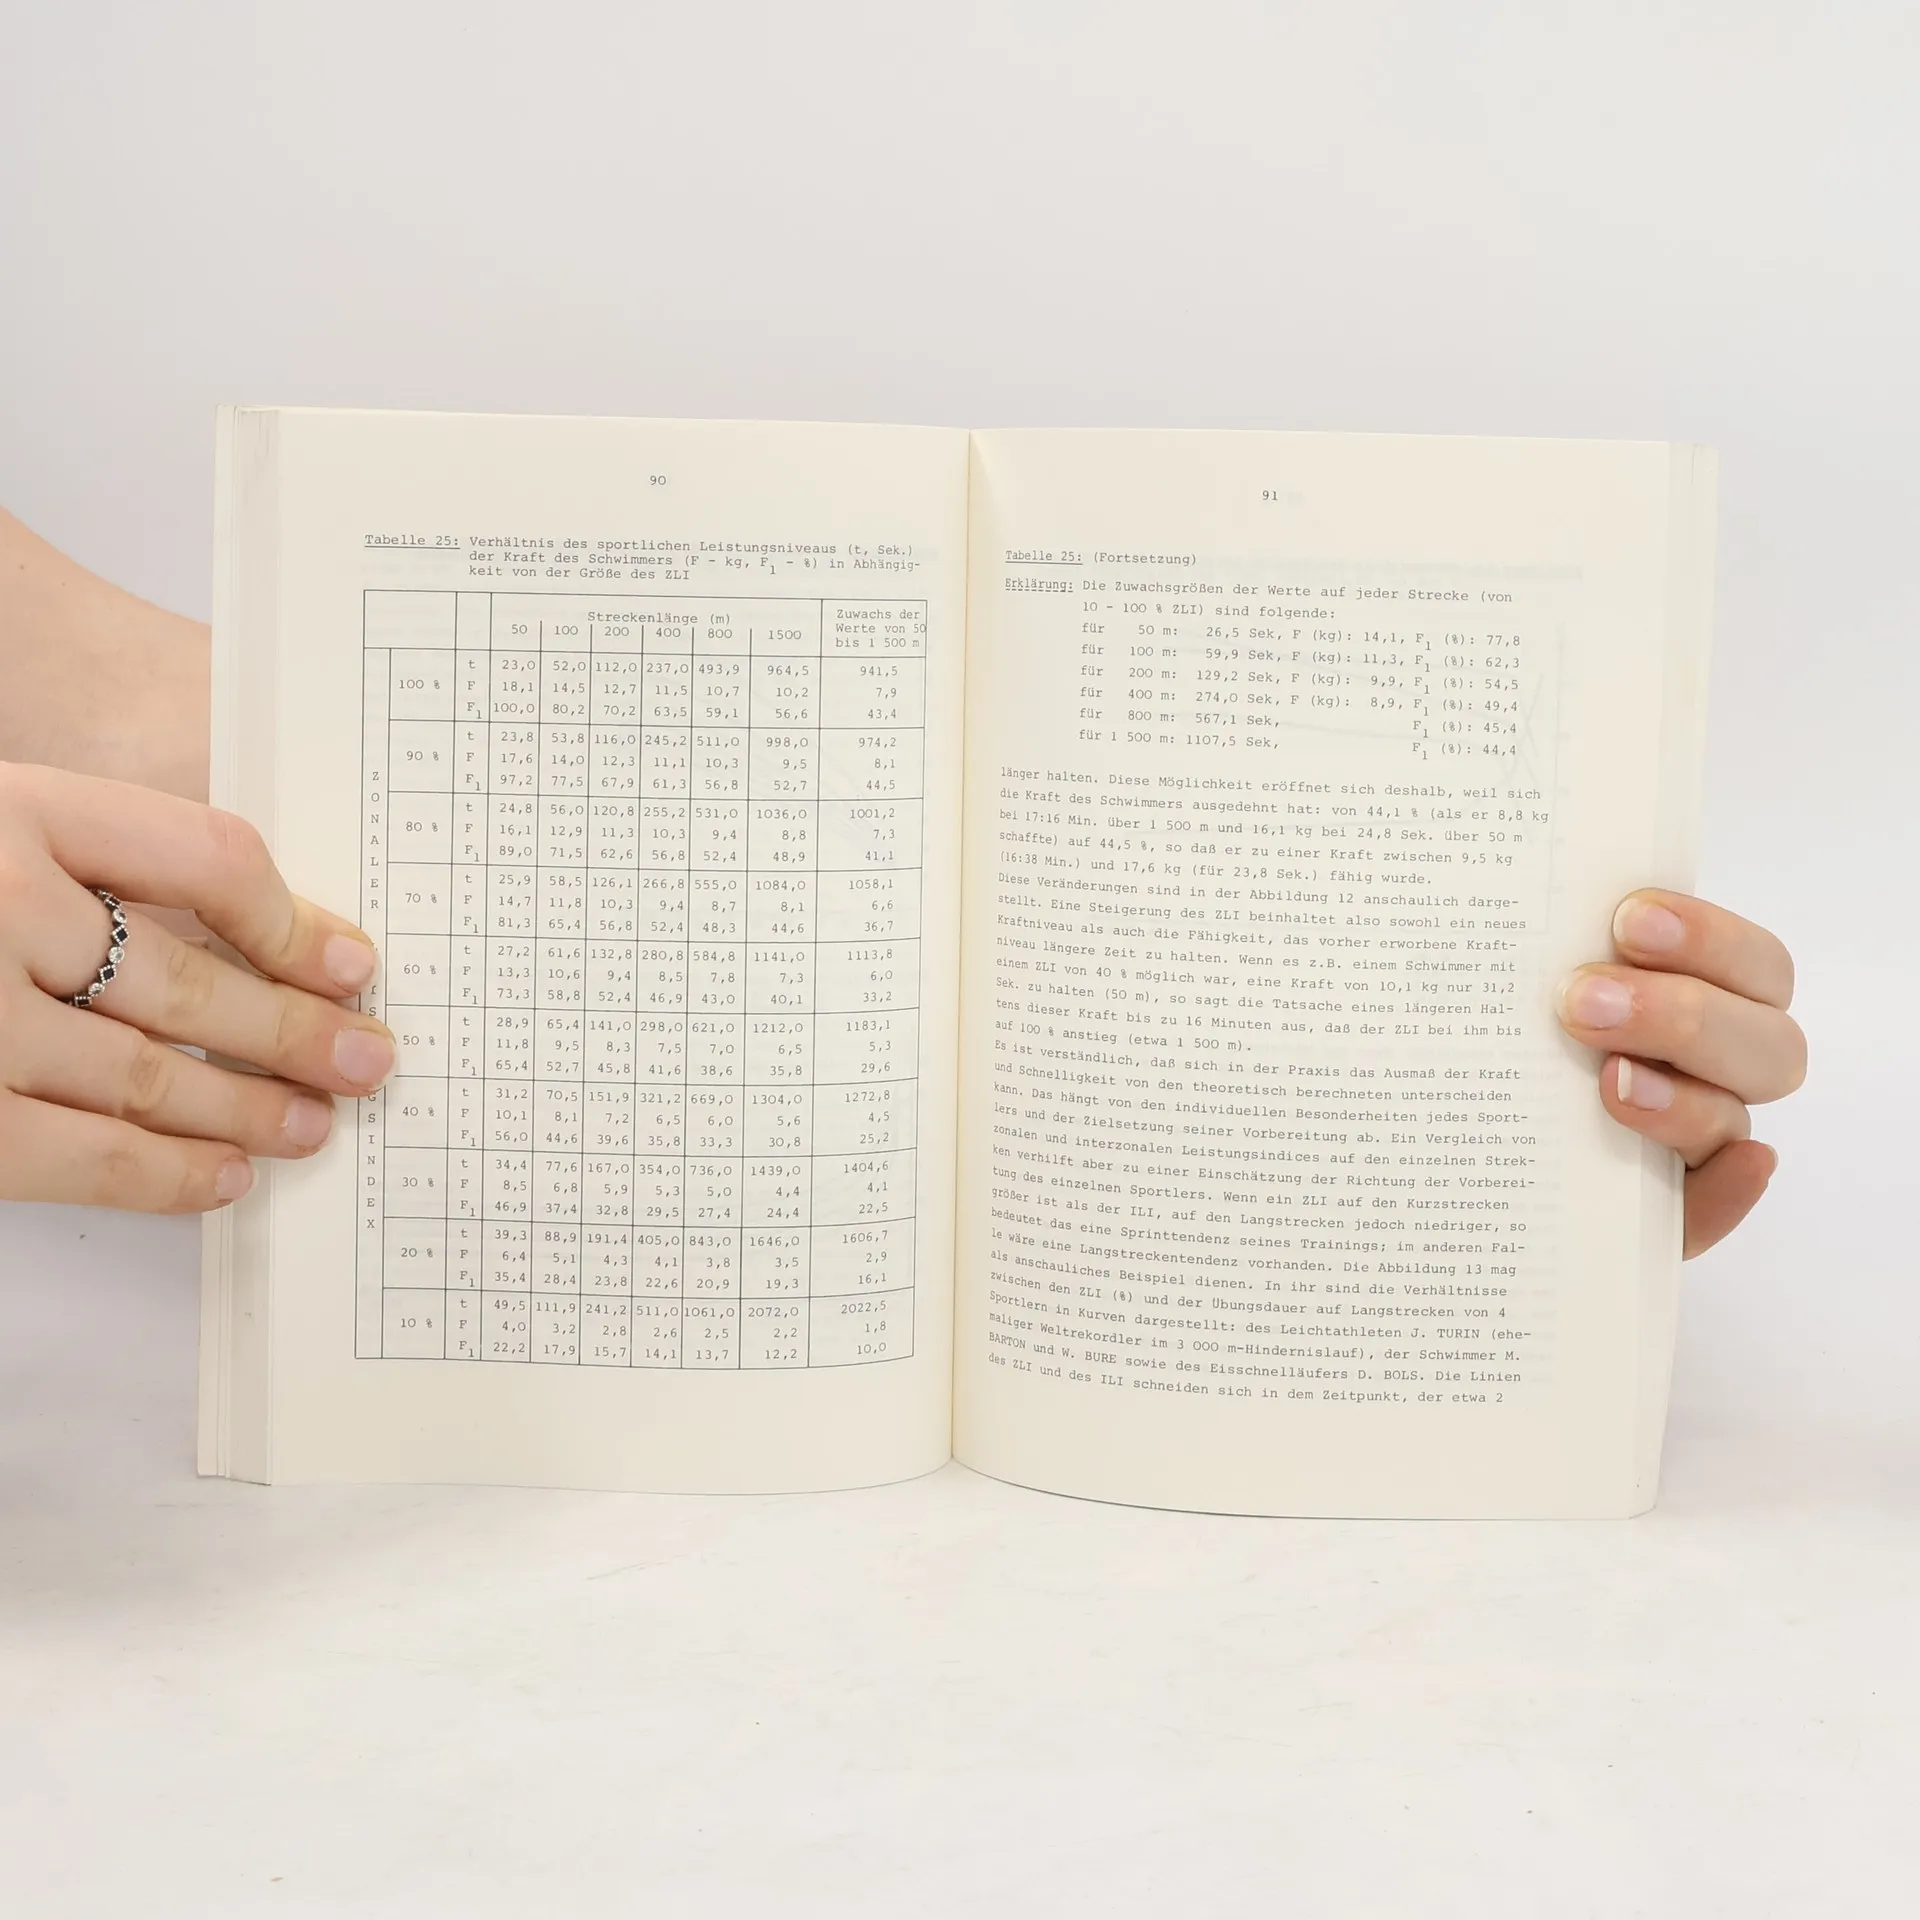 90
Tabelle 25: Verhältnis des sportlichen Leistungsniveaus (t, Sek.)
der Kraft des Schwimmers (F - kg, F1 - %) in Abhängig-
keit von der Größe des ZLI
Streckenlänge (m)
Zuwachs der
Werte von 50
bis 1 500 m
50 100 200 400 800 1500
ZONALER
GSINDEX
100 %
t 23,0 52,0 112,0 237,0 493,9 964,5 941,5
F 18,1 14,5 12,7 11,5 10,7 10,2 7,9
F1 100,0 80,2 70,2 63,5 59,1 56,6 43,4
90 %
t 23,8 53,8 116,0 245,2 511,0 998,0 974,2
F 17,6 14,0 12,3 11,1 10,3 9,5 8,1
F1 97,2 77,5 67,9 61,3 56,8 52,7 44,5
80 %
t 24,8 56,0 120,8 255,2 531,0 1036,0 1001,2
F 16,1 12,9 11,3 10,3 9,4 8,8 7,3
F1 89,0 71,5 62,6 56,8 52,4 48,9 41,1
70 %
t 25,9 58,5 126,1 266,8 555,0 1084,0 1058,1
F 14,7 11,8 10,3 9,4 8,7 8,1 6,6
F1 81,3 65,4 56,8 52,4 48,3 44,6 36,7
60 %
t 27,2 61,6 132,8 280,8 584,8 1141,0 1113,8
F 13,3 10,6 9,4 8,5 7,8 7,3 6,0
F1 73,3 58,8 52,4 46,9 43,0 40,1 33,2
50 %
t 28,9 65,4 141,0 298,0 621,0 1212,0 1183,1
F 11,8 9,5 8,3 7,5 7,0 6,5 5,3
F1 65,4 52,7 45,8 41,6 38,6 35,8 29,6
40 %
t 31,2 70,5 151,9 321,2 669,0 1304,0 1272,8
F 10,1 8,1 7,2 6,5 6,0 5,6 4,5
F1 56,0 44,6 39,6 35,8 33,3 30,8 25,2
30 %
t 34,4 77,6 167,0 354,0 736,0 1439,0 1404,6
F 8,5 6,8 5,9 5,3 5,0 4,4 4,1
F1 46,9 37,4 32,8 29,5 27,4 24,4 22,5
20 %
t 39,3 88,9 191,4 405,0 843,0 1646,0 1606,7
F 6,4 5,1 4,3 4,1 3,8 3,5 2,9
F1 35,4 28,4 23,8 22,6 20,9 19,3 16,1
10 %
t 49,5 111,9 241,2 511,0 1061,0 2072,0 2022,5
F 4,0 3,2 2,8 2,6 2,5 2,2 1,8
F1 22,2 17,9 15,7 14,1 13,7 12,2 10,0
91
Tabelle 25: (Fortsetzung)
Erklärung: Die Zuwachsgrößen der Werte auf jeder Strecke (von
10 - 100 % ZLI) sind folgende:
für 50 m: 26,5 Sek, F (kg): 14,1, F1 (%): 77,8
für 100 m: 59,9 Sek, F (kg): 11,3, F1 (%): 62,3
für 200 m: 129,2 Sek, F (kg): 9,9, F1 (%): 54,5
für 400 m: 274,0 Sek, F (kg): 8,9, F1 (%): 49,4
für 800 m: 567,1 Sek, F1 (%): 45,4
für 1 500 m: 1107,5 Sek, F1 (%): 44,4
länger halten. Diese Möglichkeit eröffnet sich deshalb, weil sich
die Kraft des Schwimmers ausgedehnt hat: von 44,1 % (als er 8,8 kg
bei 17:16 Min. über 1 500 m und 16,1 kg bei 24,8 Sek. über 50 m
schaffte) auf 44,5 %, so daß er zu einer Kraft zwischen 9,5 kg
(16:38 Min.) und 17,6 kg (für 23,8 Sek.) fähig wurde.
Diese Veränderungen sind in der Abbildung 12 anschaulich darge-
stellt. Eine Steigerung des ZLI beinhaltet also sowohl ein neues
Kraftniveau als auch die Fähigkeit, das vorher erworbene Kraft-
niveau längere Zeit zu halten. Wenn es z.B. einem Schwimmer mit
einem ZLI von 40 % möglich war, eine Kraft von 10,1 kg nur 31,2
Sek. zu halten (50 m), so sagt die Tatsache eines längeren Hal-
tens dieser Kraft bis zu 16 Minuten aus, daß der ZLI bei ihm bis
auf 100 % anstieg (etwa 1 500 m).
Es ist verständlich, daß sich in der Praxis das Ausmaß der Kraft
und Schnelligkeit von den theoretisch berechneten unterscheiden
kann. Das hängt von den individuellen Besonderheiten jedes Sport-
lers und der Zielsetzung seiner Vorbereitung ab. Ein Vergleich von
zonalen und interzonalen Leistungsindices auf den einzelnen Strek-
ken verhilft aber zu einer Einschätzung der Richtung der Vorberei-
tung des einzelnen Sportlers. Wenn ein ZLI auf den Kurzstrecken
größer ist als der ILI, auf den Langstrecken jedoch niedriger, so
bedeutet das eine Sprinttendenz seines Trainings; im anderen Fal-
le wäre eine Langstreckentendenz vorhanden. Die Abbildung 13 mag
als anschauliches Beispiel dienen. In ihr sind die Verhältnisse
zwischen den ZLI (%) und der Übungsdauer auf Langstrecken von 4
Sportlern in Kurven dargestellt: des Leichtathleten J. TURIN (ehe-
maliger Weltrekordler im 3 000 m-Hindernislauf), der Schwimmer M.
BARTON und W. BURE sowie des Eisschnelläufers D. BOLS. Die Linien
des ZLI und des ILI schneiden sich in dem Zeitpunkt, der etwa 2